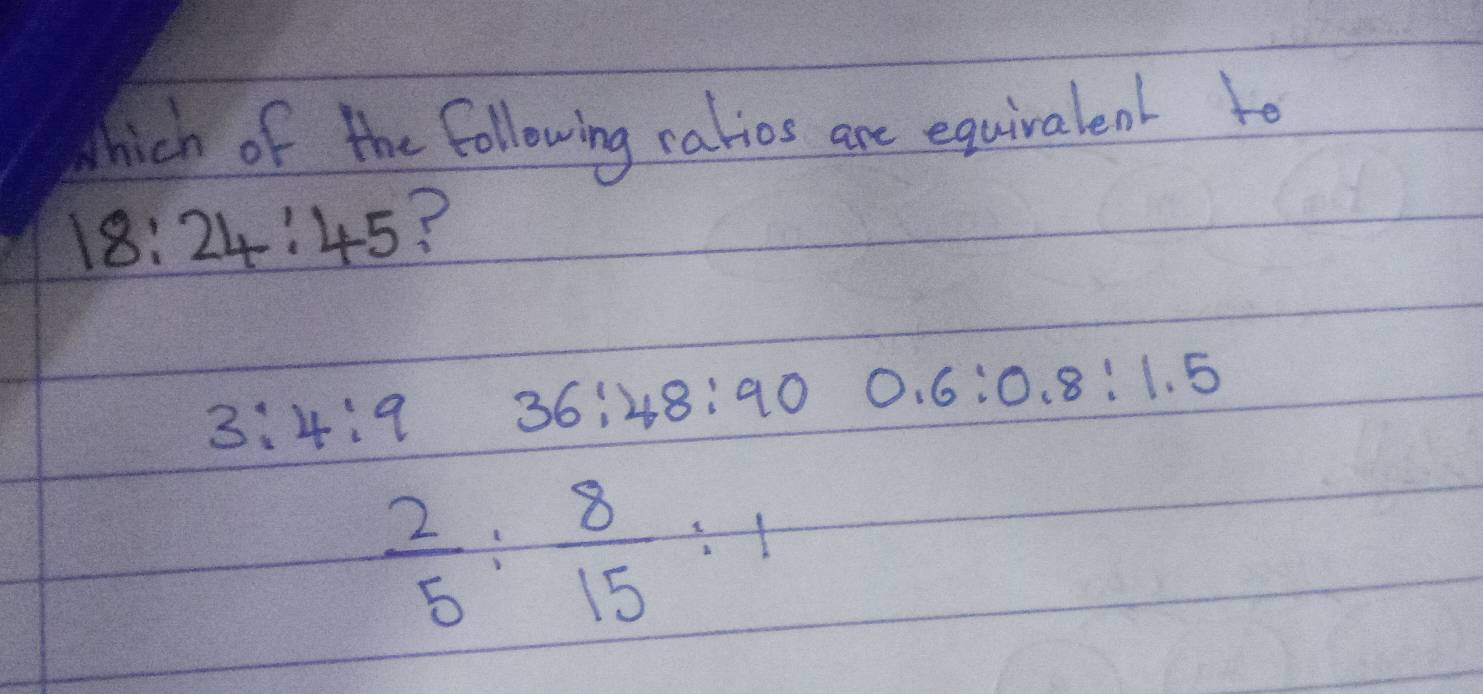 Which of the following ratios are equivalent to
18:24:45?
3:4:9 36:48:90 0.6:0.8:1.5
2/5 : 8/15 : 1